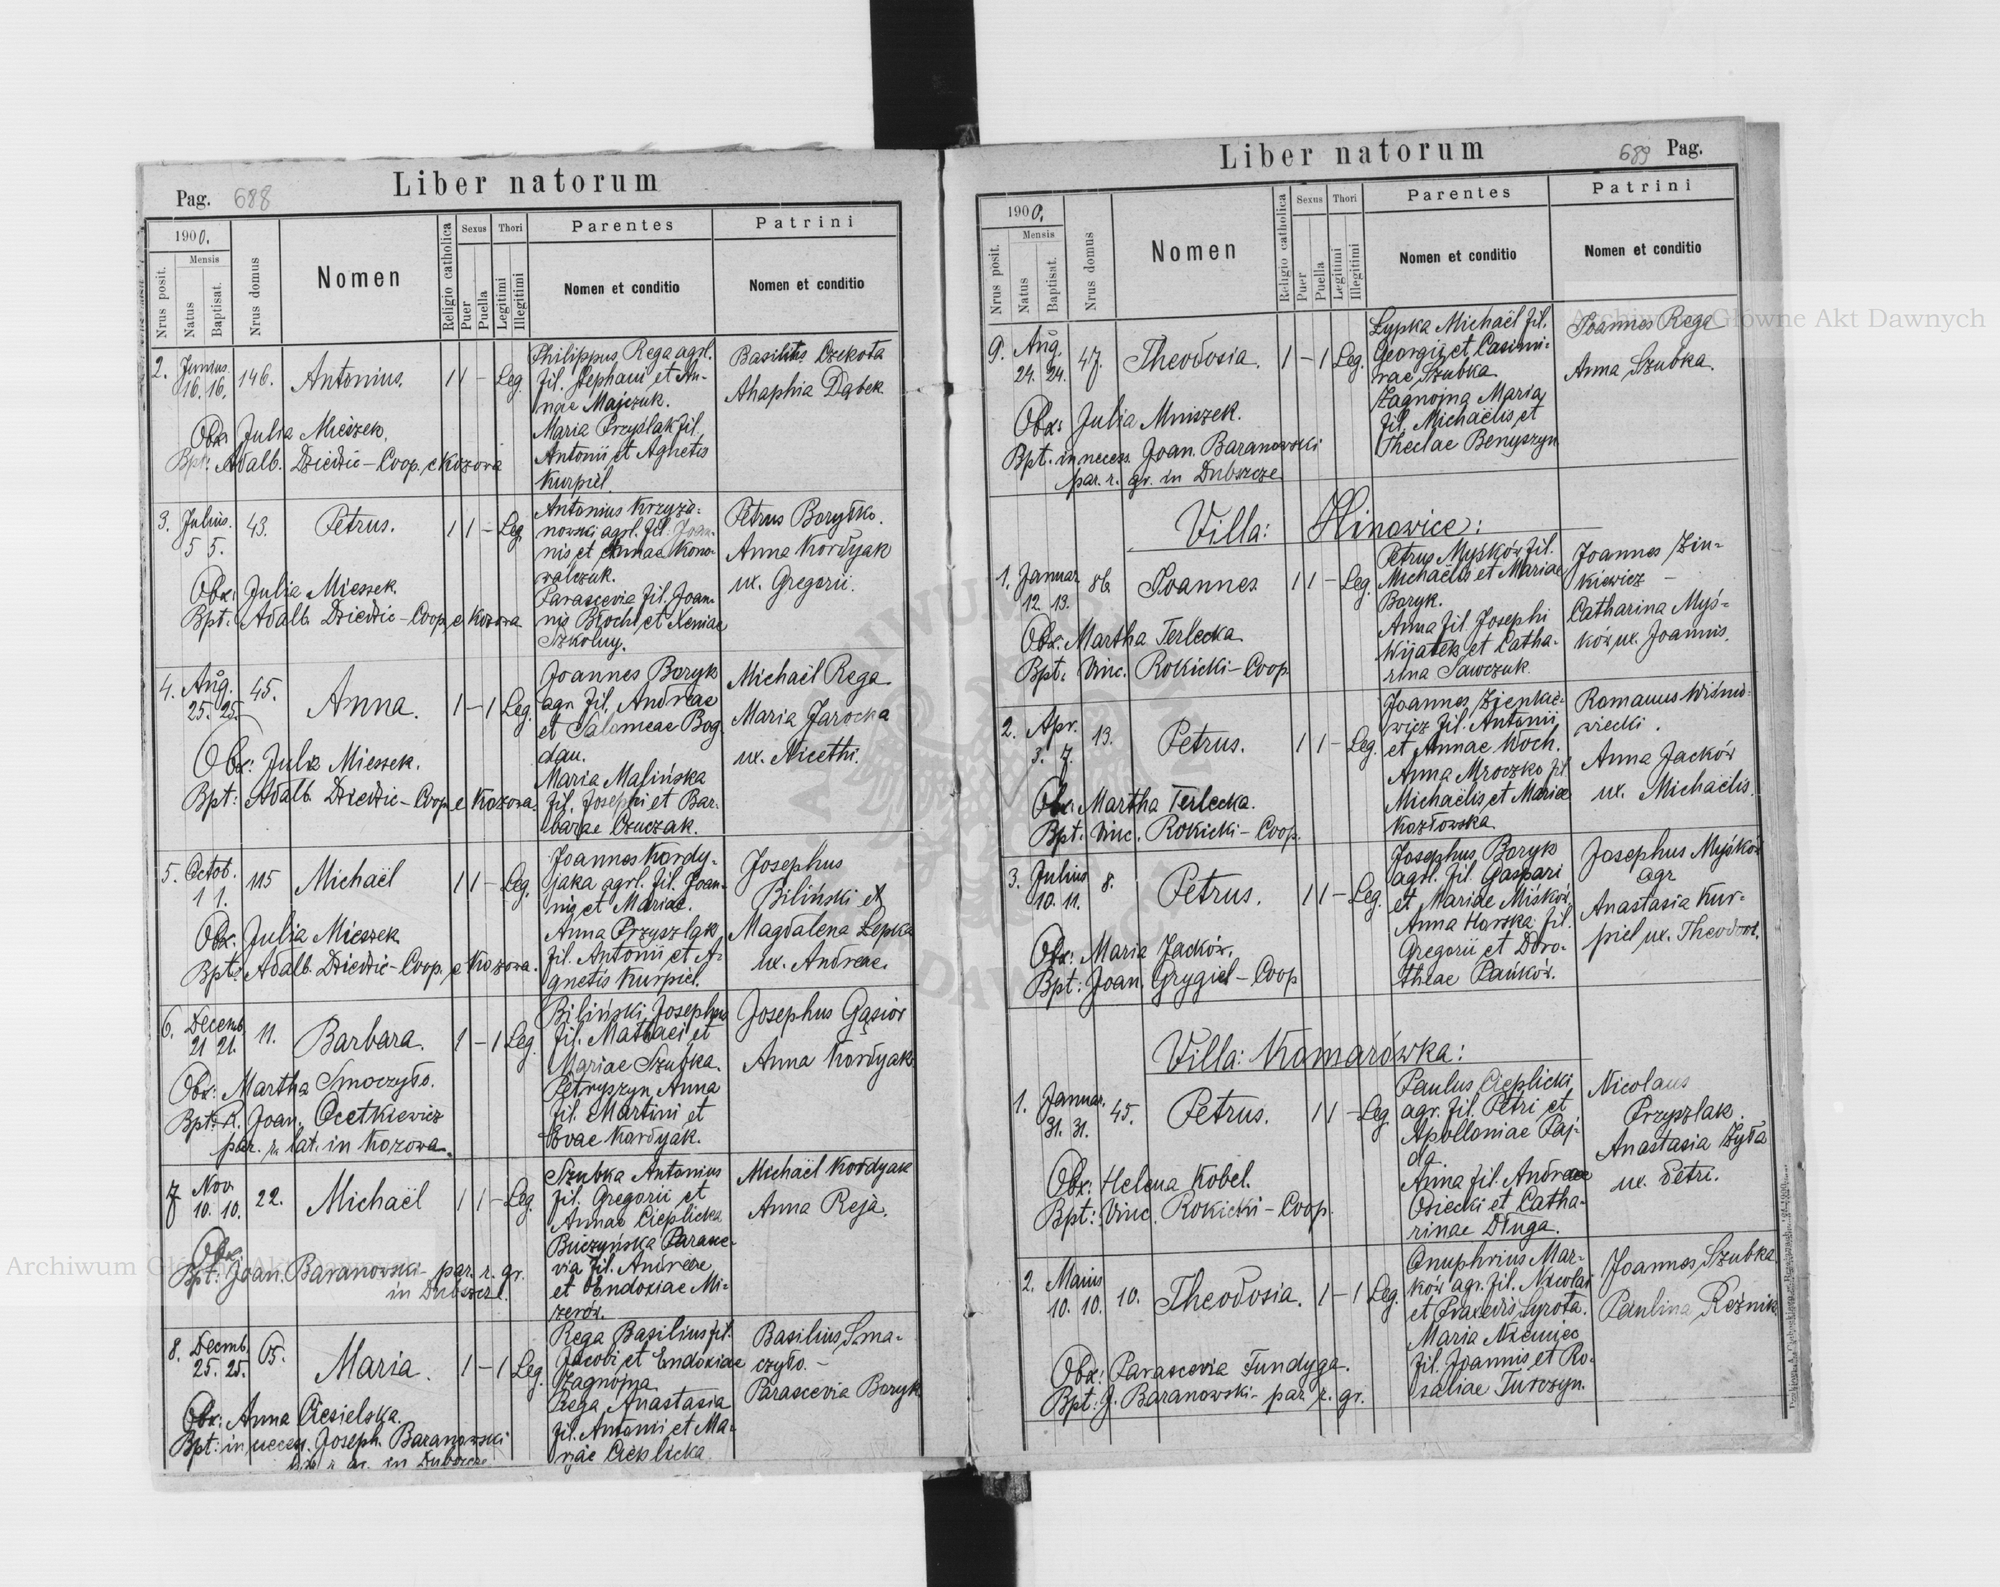 Pag. 688
Liber natorum
1900.
Nrus posit.
Mensis
Natus
Baptisat.
Nrus domus
Nomen
Religio catholica
Sexus
Puer
Puella
Thori
Legitimi
Illegitimi
Parentes
Nomen et conditio
Patrini
Nomen et conditio
2. Junius 16. 16. 146. Antonius. 1 1 - Leg.
Philippus Rega agrl.
fil. Stephani et An-
nae Majczuk.
Maria Przyślak fil.
Antonii et Agnetis
Kurpiel.
Basilius Czekota
Ahaphia Dąbek
Obx: Julia Mieszek.
Bpt: Adalb. Dziedzic - Coop. e Kozowa
3. Julius. 5 5. 43. Petrus. 1 1 - Leg.
Antonius Krzyża-
nowski agrl. fil. Joan-
nis et Annae Kono-
walczuk.
Parascevia fil. Joan-
nis Błoch et Xeniae
Szkolny.
Petrus Boryłko.
Anna Kordyak
ux. Gregorii.
Obx: Julia Mieszek.
Bpt: Adalb. Dziedzic - Coop. e Kozowa
4. Aug. 25. 25. 45. Anna. 1 - 1 Leg.
Joannes Boryk
agr. fil. Andreae
et Salomeae Bog
dan.
Maria Malińska
fil. Josephi et Bar-
barae Czuczak.
Michaël Rega.
Maria Jarocka
ux. Nicethi.
Obx: Julia Mieszek.
Bpt: Adalb. Dziedzic - Coop e Kozowa.
5. Octob. 1 1. 115 Michaël 1 1 - Leg.
Joannes Kordy-
jaka agrl. fil. Joan-
nis et Mariae.
Anna Przyszlak
fil. Antonii et A-
gnetis Kurpiel.
Josephus
Biliński et
Magdalena Lepka
ux. Andreae.
Obx: Julia Mieszek
Bpt: Adalb. Dziedzic - Coop. e Kozowa.
6. Decemb. 21 21. 11. Barbara. 1 - 1 Leg.
Biliński Josephus
fil. Mathaei et
Mariae Szubka.
Petryszyn Anna
fil. Martini et
Evae Kordyak.
Josephus Gąsior
Anna Kordyak
Obx: Martha Smoczyło.
Bpt: R. Joan. Ocetkiewicz
par. r. lat. in Kozowa.
7 Nov. 10. 10. 22. Michaël 1 1 - Leg.
Szubka Antonius
fil. Gregorii et
Annae Cieplicka
Buczyńska Parasce-
via fil. Andreae
et Eudoxiae Mi-
zerów.
Michaël Kordyak
Anna Reja.
Obx.
Bpt: Joan. Baranowski - par. r. gr.
in Dubszcze.
8. Decemb. 25. 25. 65. Maria. 1 - 1 Leg.
Rega Basilius fil.
Jacobi et Eudoxiae
Zagnojna
Rega Anastasia
fil. Antonii et Ma-
riae Cieplicka.
Basilius Sma-
czyło. -
Parascevia Boryk
Obx: Anna Ciesielska.
Bpt: in necess. Joseph. Baranowski
par. r. gr. in Dubszcze
Liber natorum
689 Pag.
1900.
Nrus posit.
Mensis
Natus
Baptisat.
Nrus domus
Nomen
Religio catholica
Sexus
Puer
Puella
Thori
Legitimi
Illegitimi
Parentes
Nomen et conditio
Patrini
Nomen et conditio
9. Aug. 24. 24. 47. Theodosia. 1 - 1 Leg.
Lypka Michaël fil.
Georgii et Casimi-
rae Szubka
Zagnojna Maria
fil. Michaëlis et
Theclae Benyszyn
Joannes Rega
Anna Szubka.
Obx: Julia Mniszek.
Bpt. in necess. Joan. Baranowski
par. r. gr. in Dubszcze
Villa: Hinowice:
1. Januar. 12. 13. 86. Joannes 1 1 - Leg.
Petrus Myśków fil.
Michaëlis et Mariae
Boryk.
Anna fil. Josephi
Kijatek et Catha-
rina Sawczuk.
Joannes Zin-
kiewicz -
Catharina Myś-
ków ux. Joannis.
Obx: Martha Terlecka
Bpt. Vinc. Rokicki - Coop
2. Apr. 3. 7. 13. Petrus. 1 1 - Leg.
Joannes Zienkie-
wicz fil. Antonii
et Annae Woch.
Anna Mroczko fil.
Michaëlis et Mariae
Kozłowska
Romanus Wiśnio-
wiecki.
Anna Jacków
ux. Michaëlis.
Obx: Martha Terlecka.
Bpt. Vinc. Rokicki - Coop.
3. Julius 10. 11. 8. Petrus. 1 1 - Leg.
Josephus Boryk
agrl. fil. Gaspari
et Mariae Miśków
Anna Horska fil.
Gregorii et Doro-
theae Pańków.
Josephus Myśków
agr
Anastasia Kur-
piel ux. Theodori.
Obx: Maria Jacków.
Bpt: Joan. Grygiel - Coop
Villa: Komarówka:
1. Januar. 31. 31. 45. Petrus. 1 1 - Leg.
Paulus Cieplicki
agr. fil. Petri et
Apolloniae Paj-
da
Anna fil. Andreae
Osiecki et Catha-
rinae Długa.
Nicolaus
Przyszlak.
Anastasia Zyła
ux. Petri.
Obx: Helena Kobel.
Bpt: Vinc. Rokicki - Coop.
2. Maius 10. 10. 10. Theodosia. 1 - 1 Leg.
Onuphrius Mar-
ków agr. fil. Nicolai
et Praxedis Syrota.
Maria Niemiec
fil. Joannis et Ro-
saliae Turczyn.
Joannes Szubka
Paulina Reźnik
Obx: Parascevia Fundyga.
Bpt: J. Baranowski - par. r. gr.
Archiwum Główne Akt Dawnych
Archiwum Główne Akt Dawnych